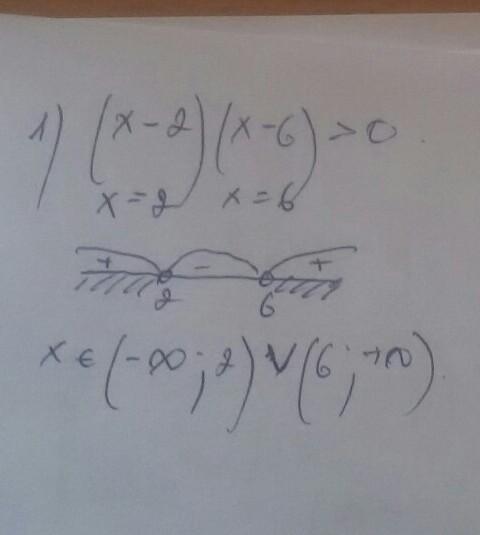 1) (x-2)(x-6)>0.
x=2 x=6
+ - +
2 6
x∈(-∞;2)∨(6;+∞).